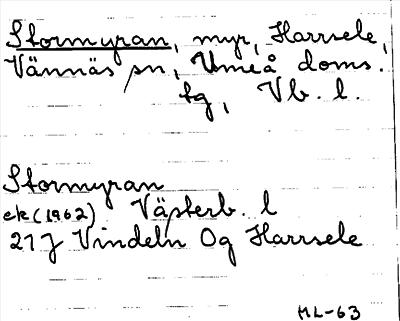 Stormyran, myr, Harrsele,
Vännäs sn, Umeå doms.
tg, Vb. l.
Stormyran
ek (1962) Västerb. l
21 J Vindeln Og Harrsele
ML-63